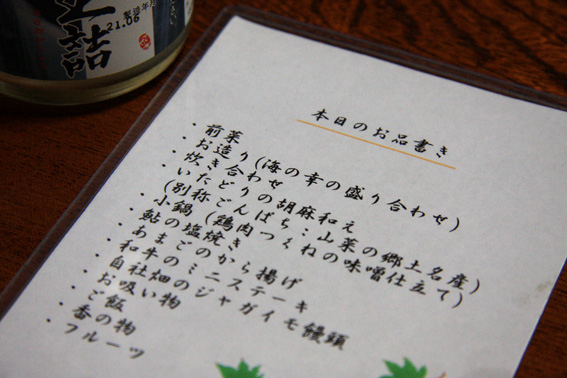 生詰
製造年月
21.06
本日のお品書き
・前菜
・お造り(海の幸の盛り合わせ)
・炊き合わせ
・いたどりの胡麻和え
(別称ごんぱち:山菜の郷土名産)
・小鍋(鶏肉つくねの味噌仕立て)
・鮎の塩焼き
・あまごのから揚げ
・和牛のミニステーキ
・自社畑のジャガイモ饅頭
・お吸い物
・ご飯
・香の物
・フルーツ